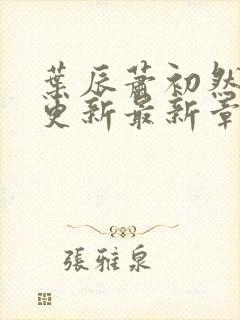 葉辰蕭初然
更新最新章
張雅泉